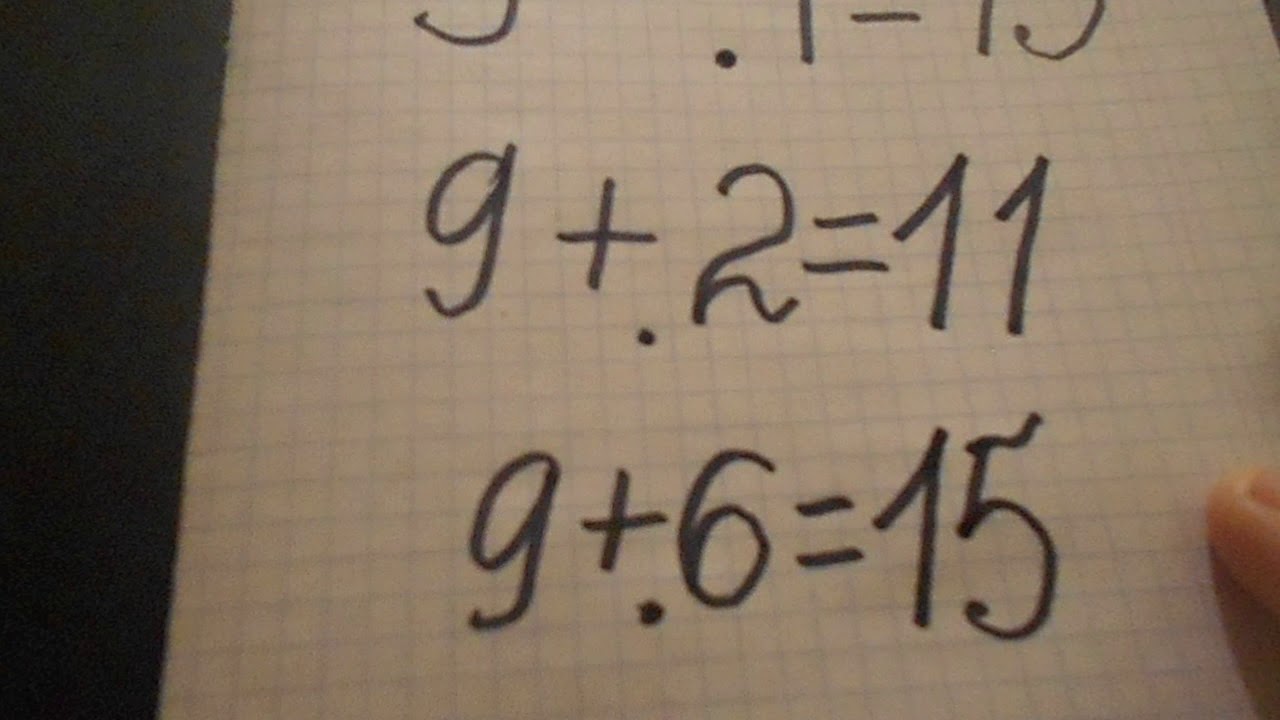 9 + .2=11
9+.6=15